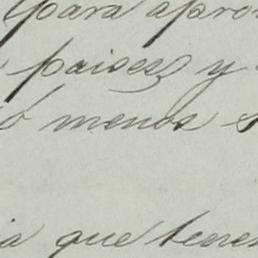 para apro
paises y
ó menos s
ia que tenem